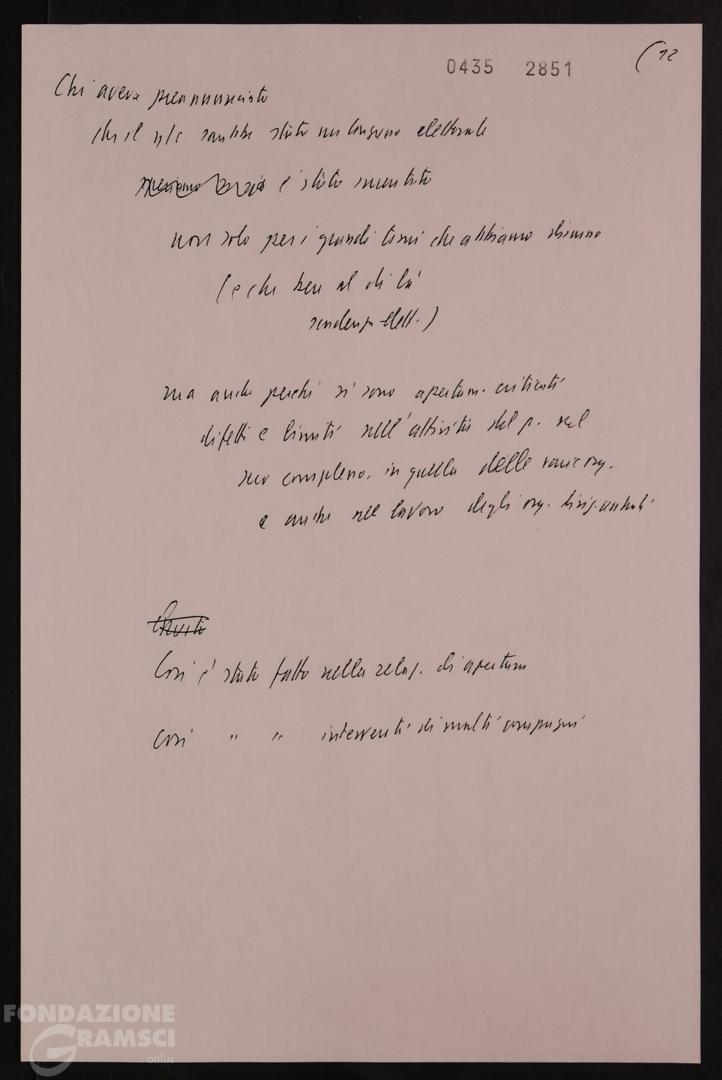 0435 2851
(12
Chi aveva preannunciato
che il n/c sarebbe stato un congresso elettorale
è stato smentito
non solo per i grandi temi che abbiamo discusso
(e che ben al di là
scadenza elett.)
ma anche perché si sono apertam. criticati
difetti e limiti nell'attività del p. nel
suo complesso, in quella delle varie org.
e anche nel lavoro degli org. dirig. centrali
Così è stato fatto nella relaz. di apertura
così " " interventi di molti compagni
FONDAZIONE
GRAMSCI
onlus